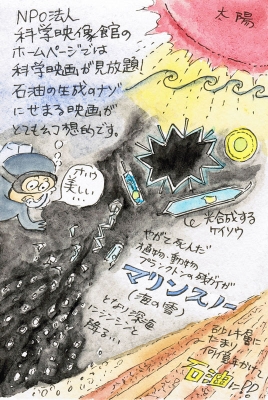 NPO法人
科学映像館の
ホームページでは
科学映画が見放題!
石油の生成のナゾ
にせまる映画が
とても幻想的です。
太陽
ホウ
美しい…
光合成する
ケイソウ
やがて死んだ
植物・動物
プランクトンの残ガイが
マリンスノー
(海の雪)
となり深海
シンシンと
降る…
砂と十層に
たまり
何億年かけて
石油に!!